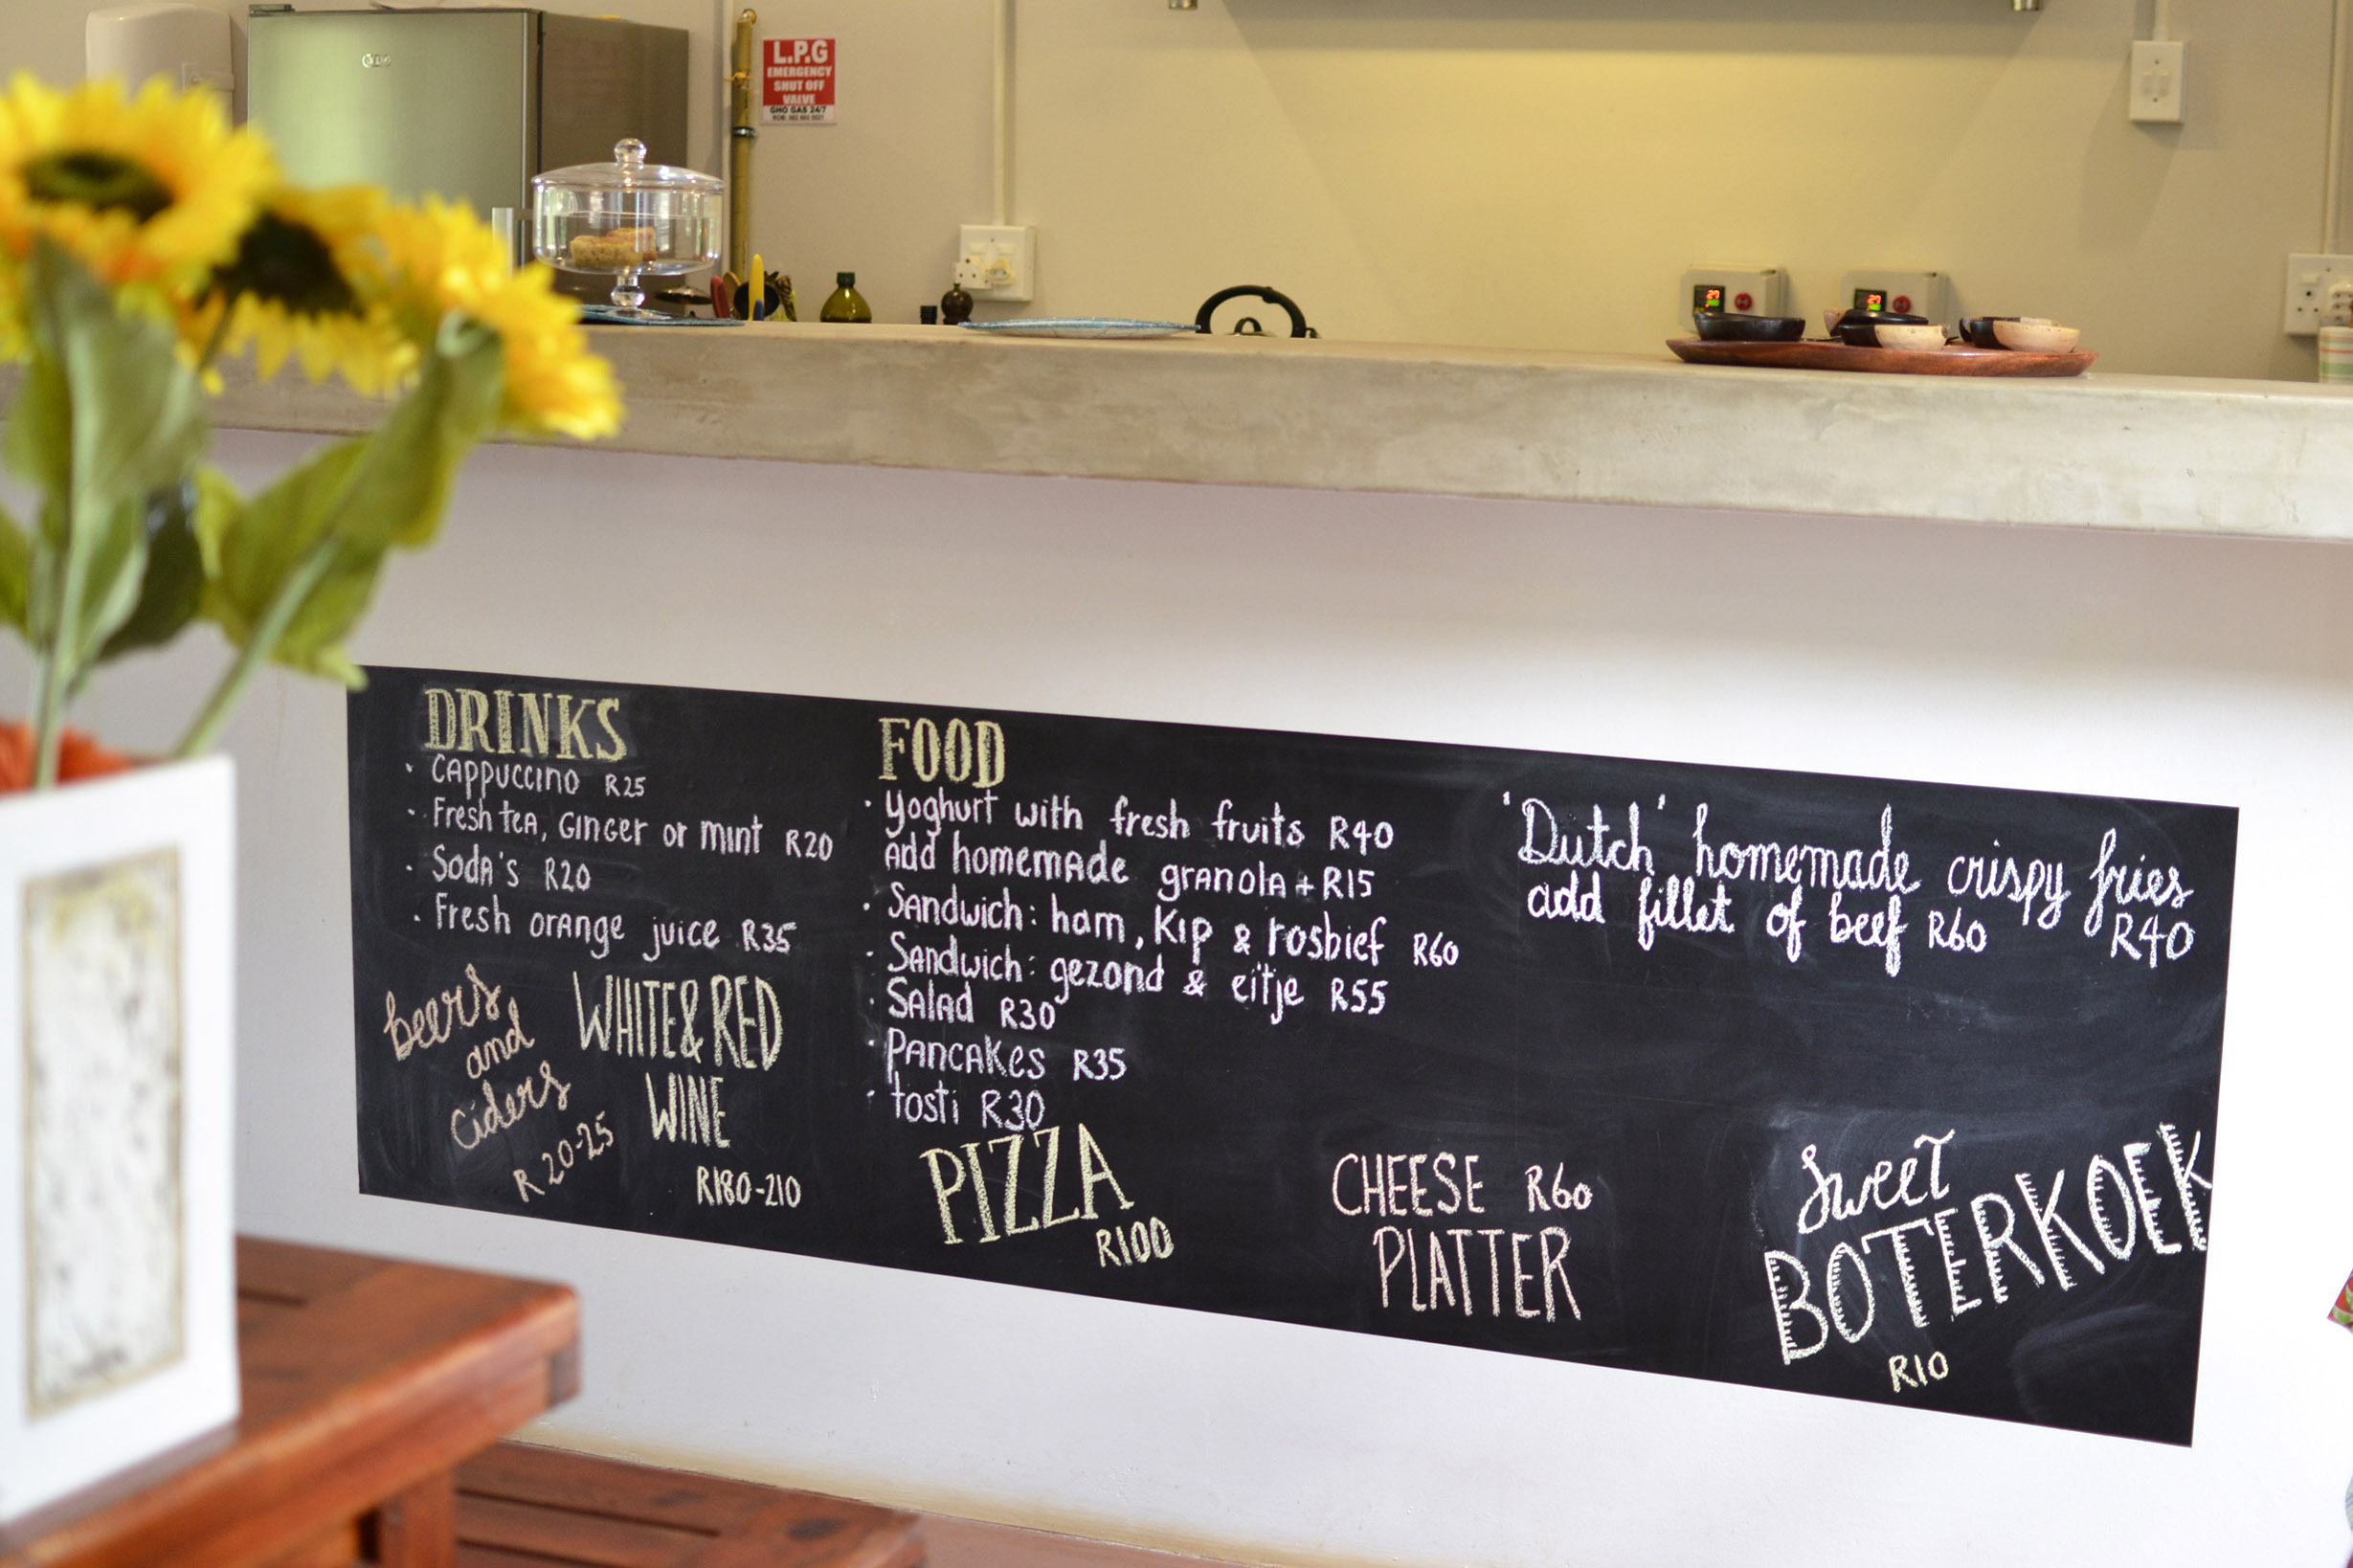 L.P.G
EMERGENCY
SHUT OFF
VALVE
GHO GAS 24/7
DRINKS
· Cappuccino R25
· Fresh tea, Ginger or mint R20
· Soda's R20
· Fresh orange juice R35
beers
and
ciders
R 20-25
WHITE & RED
WINE
R180-210
FOOD
· Yoghurt with fresh fruits R40
Add homemade granola + R15
· Sandwich: ham, Kip & rosbief R60
· Sandwich: gezond & eitje R55
· Salad R30
· Pancakes R35
· tosti R30
PIZZA
R100
'Dutch' homemade crispy fries
R40
add fillet of beef R60
CHEESE R60
PLATTER
Sweet
BOTERKOEK
R10